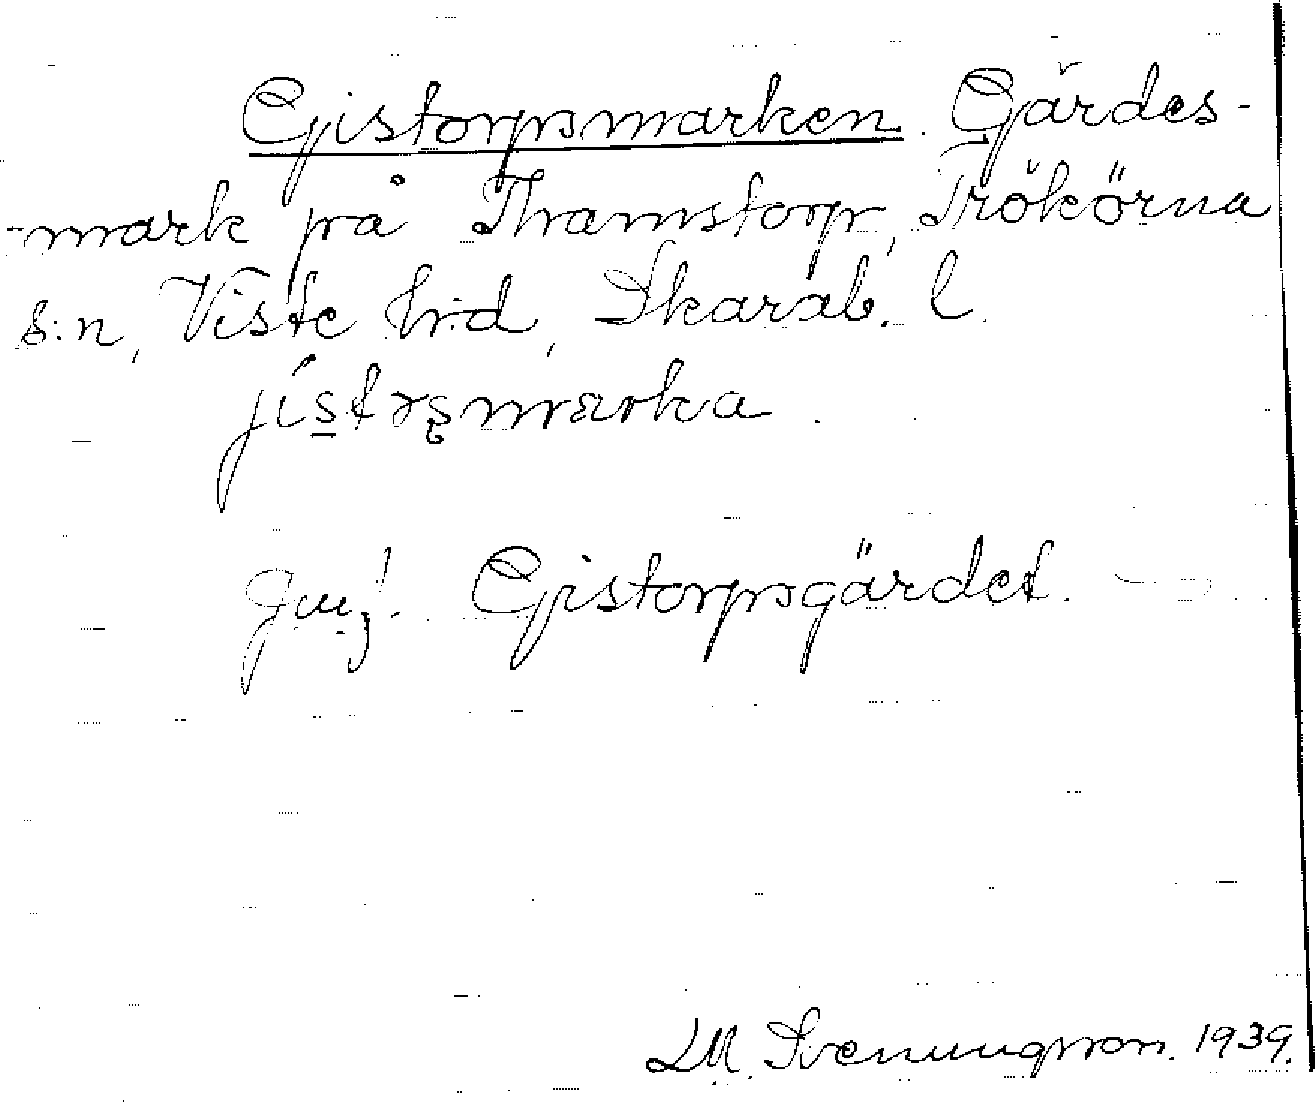 Gistorpsmarken. Gärdes-
-mark på Thamstorp, Trökörna
s:n, Viste h:d, Skarab. l.
jístrsmarka.
Jmf. Gistorpsgärdet.
L. M. Svenungsson. 1939.